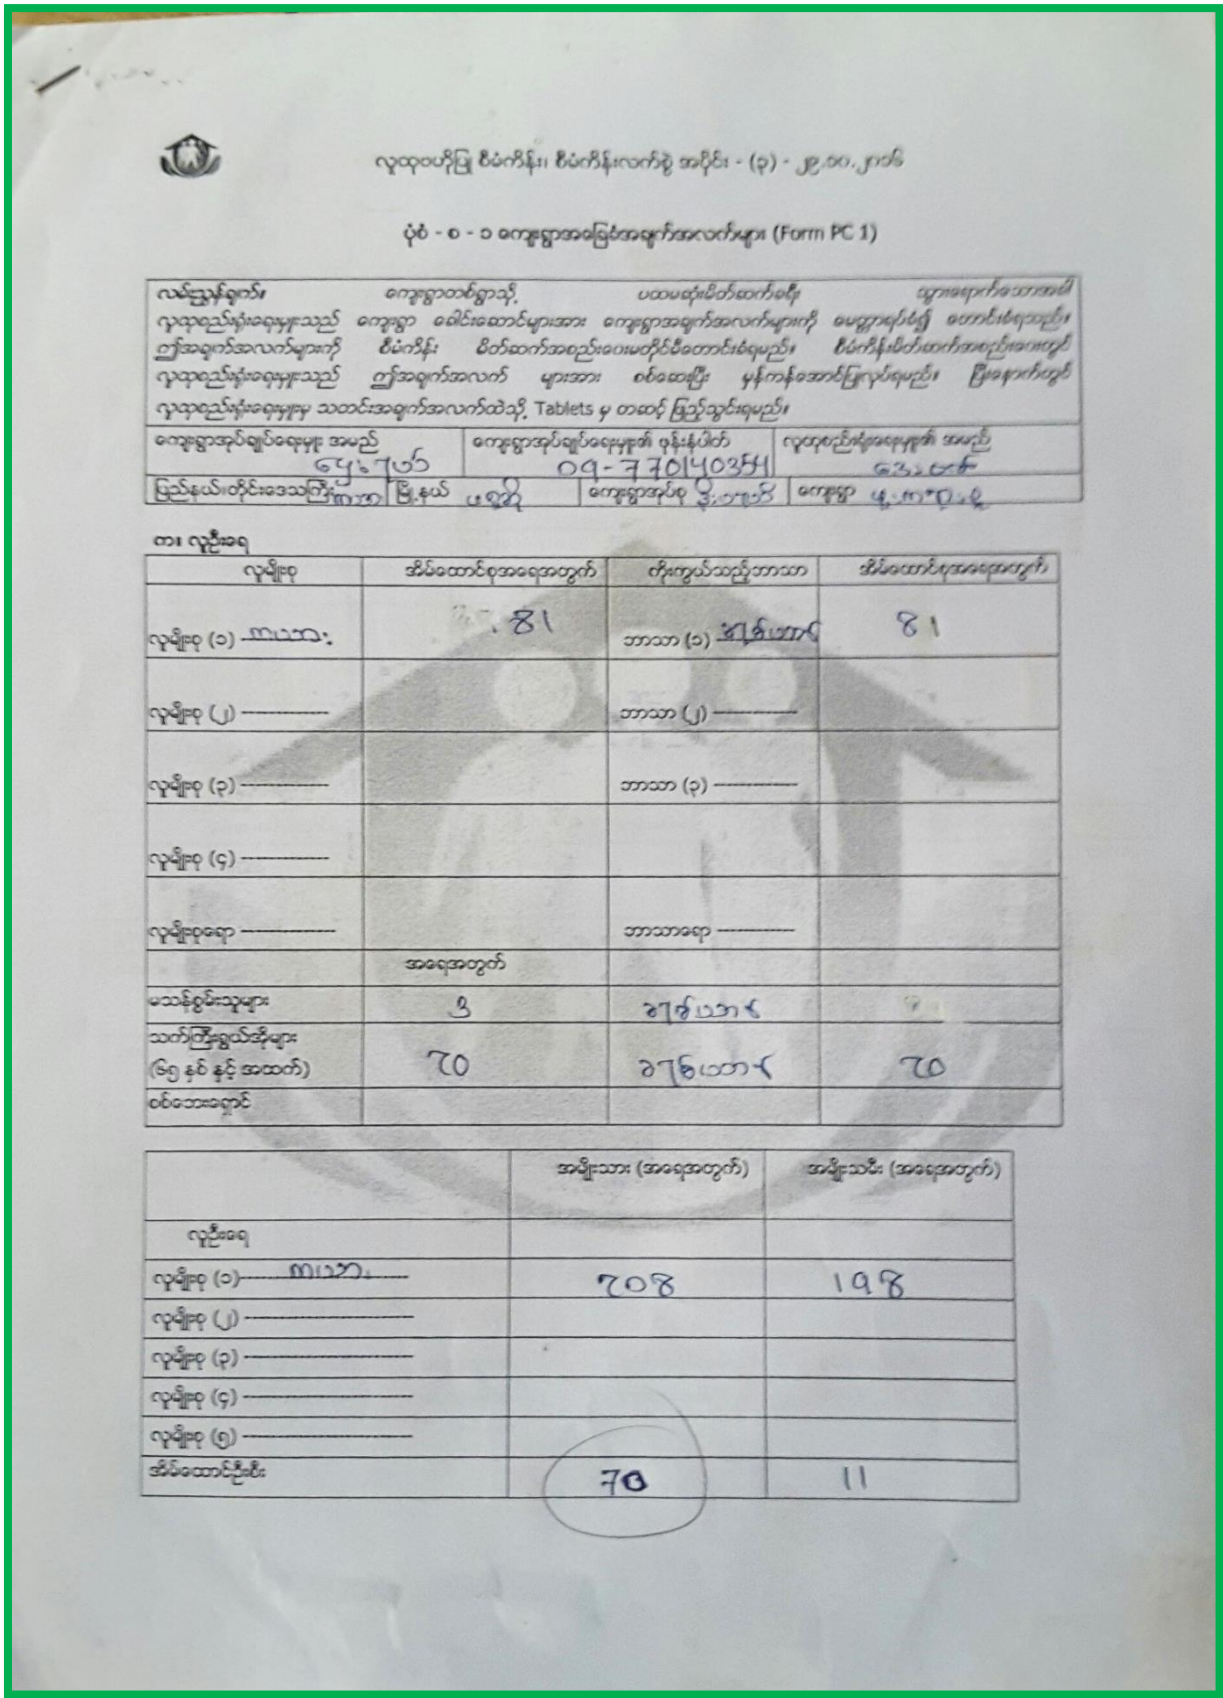 လူထုဗဟိုပြု စီမံကိန်း၊ စီမံကိန်းလက်စွဲ အပိုင်း - (၃) - ၂၉.၁၀.၂၀၁၆
ပုံစံ - စ - ၁ ကျေးရွာအခြေခံအချက်အလက်များ (Form PC 1)
လမ်းညွှန်ချက်။ ကျေးရွာတစ်ရွာသို့ ပထမဆုံးမိတ်ဆက်ခရီး သွားရောက်သောအခါ
လူထုစည်းရုံးရေးမှူးသည် ကျေးရွာ ခေါင်းဆောင်များအား ကျေးရွာအချက်အလက်များကို မေတ္တာရပ်ခံ၍ တောင်းခံရသည်။
ဤအချက်အလက်များကို စီမံကိန်း မိတ်ဆက်အစည်းဝေးမတိုင်မီတောင်းခံရမည်။ စီမံကိန်းမိတ်ဆက်အစည်းဝေးတွင်
လူထုစည်းရုံးရေးမှူးသည် ဤအချက်အလက် များအား စစ်ဆေးပြီး မှန်ကန်အောင်ပြုလုပ်ရမည်။ ပြီးနောက်တွင်
လူထုစည်းရုံးရေးမှူးမှ သတင်းအချက်အလက်ထဲသို့ Tablets မှ တဆင့် ဖြည့်သွင်းရမည်။
ကျေးရွာအုပ်ချုပ်ရေးမှူး အမည် ကျေးရွာအုပ်ချုပ်ရေးမှူး၏ ဖုန်းနံပါတ် လူထုစည်းရုံးရေးမှူး၏ အမည်
09-770140354
ပြည်နယ်၊တိုင်းဒေသကြီး မြို့နယ် ကျေးရွာအုပ်စု ကျေးရွာ
က။ လူဦးရေ
လူမျိုးစု အိမ်ထောင်စုအရေအတွက် ကိုးကွယ်သည့်ဘာသာ အိမ်ထောင်စုအရေအတွက်
လူမျိုးစု (၁) ကယား 81 ဘာသာ (၁) ခရစ်ယာန် 81
လူမျိုးစု (၂) ------------- ဘာသာ (၂) -------------
လူမျိုးစု (၃) ------------- ဘာသာ (၃) -------------
လူမျိုးစု (၄) -------------
လူမျိုးစုရော ------------- ဘာသာရော ------------
အရေအတွက်
မသန်စွမ်းသူများ 3 ခရစ်ယာန်
သက်ကြီးရွယ်အိုများ
(၆၅ နှစ် နှင့် အထက်) 20 ခရစ်ယာန် 20
စစ်ဘေးရှောင်
အမျိုးသား (အရေအတွက်) အမျိုးသမီး (အရေအတွက်)
လူဦးရေ
လူမျိုးစု (၁) ကယား 208 198
လူမျိုးစု (၂) --------------------------
လူမျိုးစု (၃) --------------------------
လူမျိုးစု (၄) --------------------------
လူမျိုးစု (၅) --------------------------
အိမ်ထောင်ဦးစီး 70 11